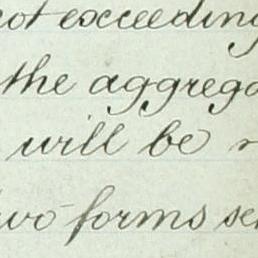 not exceeding
the aggrega
will be
two forms se